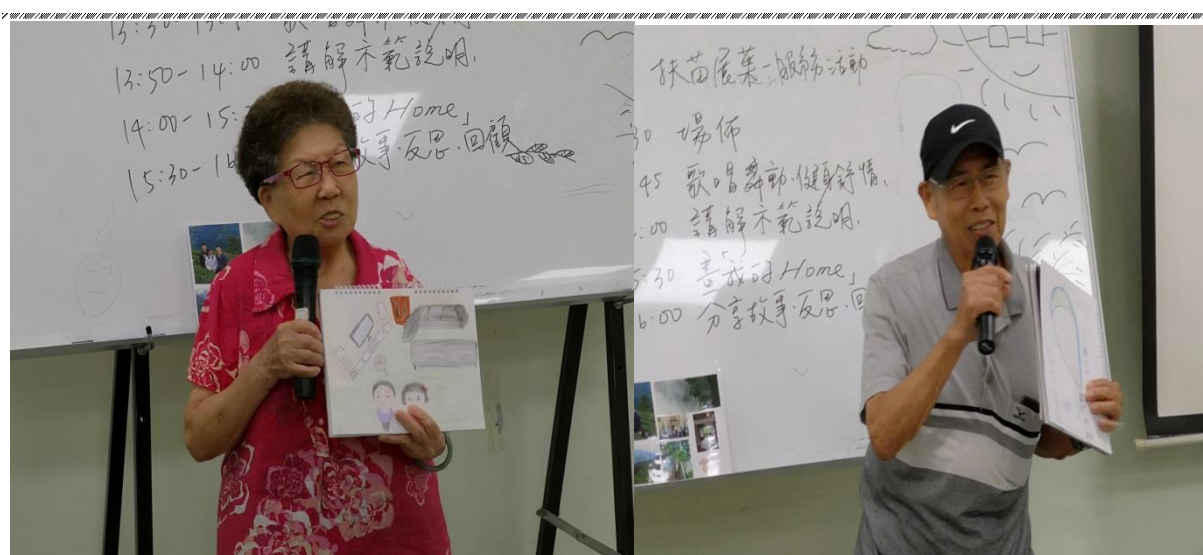 13:50-14:00 講解示範說明、
14:00-15: 的Home」
15:30-1 故事、反思、回顧
扶苗展葉-服務活動
30 場佈
45 歌唱舞動、健身舒情、
:00 講解示範說明、
5:30 畫「我的Home」
6:00 分享故事、反思、回